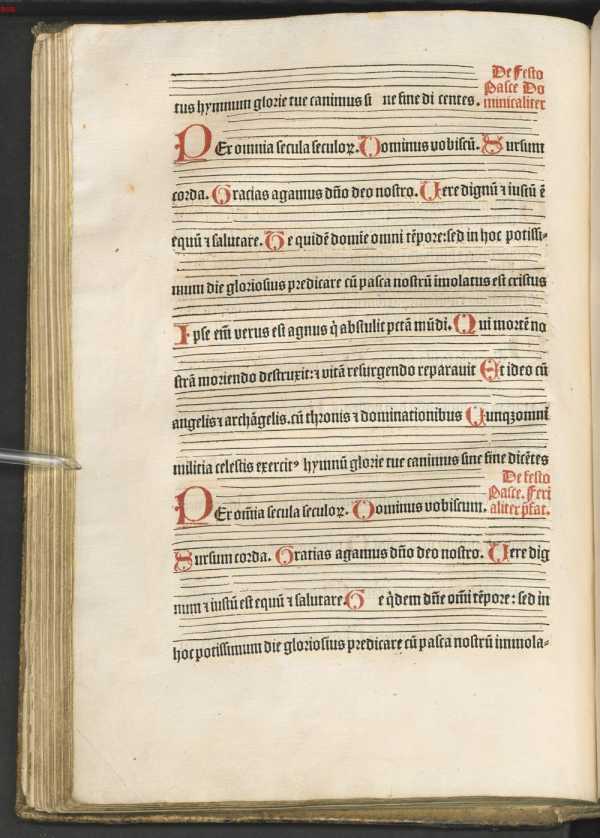 De festo
Pasce Do
minicaliter
tus hymnum glorie tue canimus si ne fine di centes.
PEr omnia secula seculoꝝ. Dominus vobiscū. Sursum
corda. Gracias agamus dño deo nostro. Uere dignū ⁊ iustū ē
equū ⁊ salutare. Te quidē domie omni tēpore: sed in hoc potissi⸗
mum die gloriosius predicare cū pasca nostrū imolatus est cristus
Ipse em̄ verus est agnus q̇ abstulit pctā mūdi. Qui mortē no
strā moriendo destruxit: ⁊ vitā resurgendo reparavit Et ideo cū
angelis ⁊ archāgelis. cū thronis ⁊ dominationibus Cunqꝫ omni
militia celestis exercitꝰ hymnū glorie tue canimus sine fine dicētes
De festo
Pasce. Feri
aliter p̄fat.
PEr om̄ia secula seculoꝝ. Dominus vobiscum.
Sursum corda. Gratias agamus dño deo nostro. Uere dig
num ⁊ iustū est equū ⁊ salutare. Te q̇dem dn̄e om̄i tēpore: sed in
hoc potissimum die gloriosius predicare cū pasca nostrū immola⸗